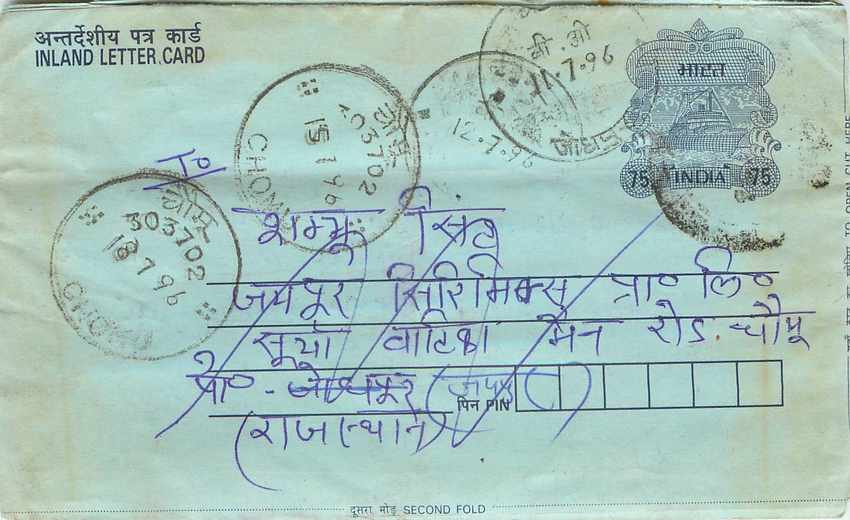 अन्तर्देशीय पत्र कार्ड
INLAND LETTER CARD
बी.ओ
11.7.96
भारत
75 INDIA 75
12.7.96
चौमू
303702
15 7 96
CHOMU
चौमू
303702
18 7 96
CHOMU
To
शम्भू सिंह
जयपुर सिरिमिक्स प्रा० लि०
सूर्या वाटिका मैन रोड. चौमू
पो० - जोधपुर (जयपुर)
पिन PIN
(राजस्थान)
दूसरा मोड़ SECOND FOLD
TO OPEN CUT HERE